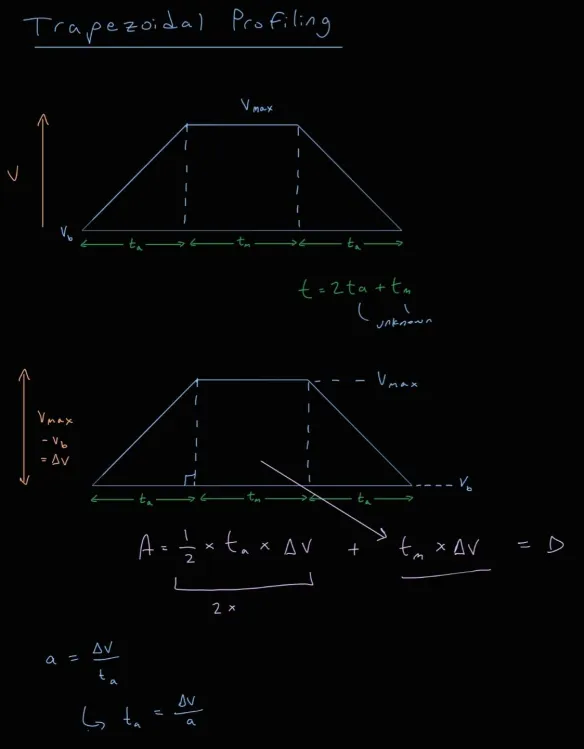 Trapezoidal Profiling
Vmax
V
Vb
ta tm ta
t = 2ta + tm
unknown
Vmax
Vmax
- Vb
= ΔV
Vb
ta tm ta
A = 1/2 × ta × ΔV + tm × ΔV = D
2 ×
a = ΔV/ta
↳ ta = ΔV/a